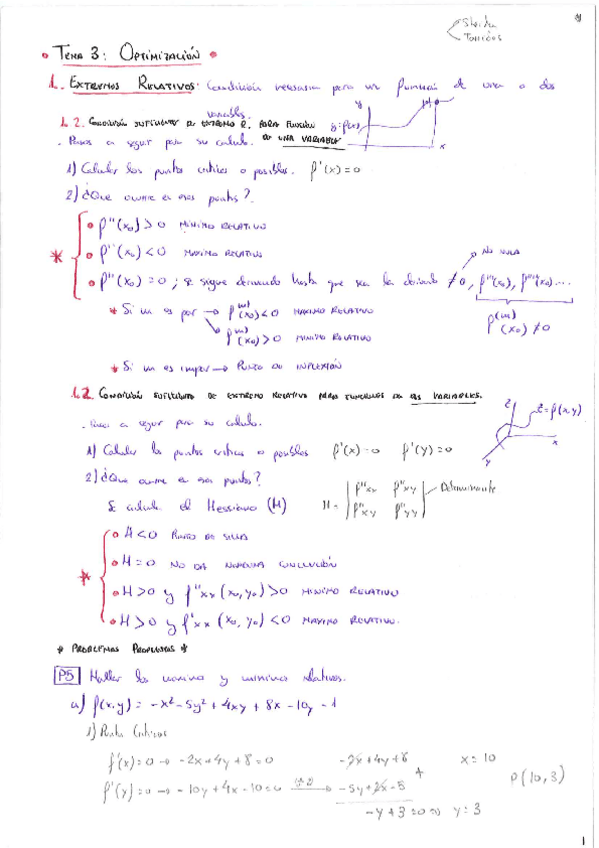 Sheila
4
• TEMA 3: OPTIMIZACIÓN •
1. EXTREMOS RELATIVOS: Condición necesaria para una función de una o dos
variables.
1.2. CONDICIÓN SUFICIENTE DE EXTREMO R. PARA FUNCIÓN
DE UNA VARIABLE
y=f(x)
y
x
. Pasos a seguir para su cálculo.
1) Calcular los puntos críticos o posibles. f'(x)=0
2) ¿Que ocurre en esos puntos?
• f''(x₀)>0 MÍNIMO RELATIVO
NO NULA
* • f''(x₀)<0 MÁXIMO RELATIVO
• f''(x₀)=0; se sigue derivando hasta que sea la derivada ≠0, f'''(x₀), f''''(x₀)....
* Si m es par → f^(m)(x₀)<0 MÁXIMO RELATIVO
f^(m)(x₀)≠0
f^(m)(x₀)>0 MÍNIMO RELATIVO
* Si m es impar → PUNTO DE INFLEXIÓN
1.2 CONDICIÓN SUFICIENTE DE EXTREMO RELATIVO PARA FUNCIONES DE DOS VARIABLES.
z
z=f(x,y)
x
y
. Pasos a seguir para su cálculo.
1) Calcular los puntos críticos o posibles f'(x)=0 f'(y)=0
2) ¿Que ocurre en esos puntos?
Se calcula el Hessiano (H)
H= | f''xx f''xy |
| f''xy f''yy |
Determinante
• H<0 PUNTO DE SILLA
• H=0 NO DA NINGUNA CONCLUSIÓN
* • H>0 y f''xx(x₀,y₀)>0 MÍNIMO RELATIVO
• H>0 y f''xx(x₀,y₀)<0 MÁXIMO RELATIVO.
* PROBLEMAS PROPUESTOS *
P5 Hallar los máximos y mínimos relativos.
a) f(x,y) = -x²-5y²+4xy+8x-10y-1
1) Puntos Críticos
f'(x)=0 → -2x+4y+8=0
-2x+4y+8
x=10
f'(y)=0 → -10y+4x-10=0 (÷2) →
-5y+2x-5
+
P(10,3)
-y+3=0 ⇒ y=3
1